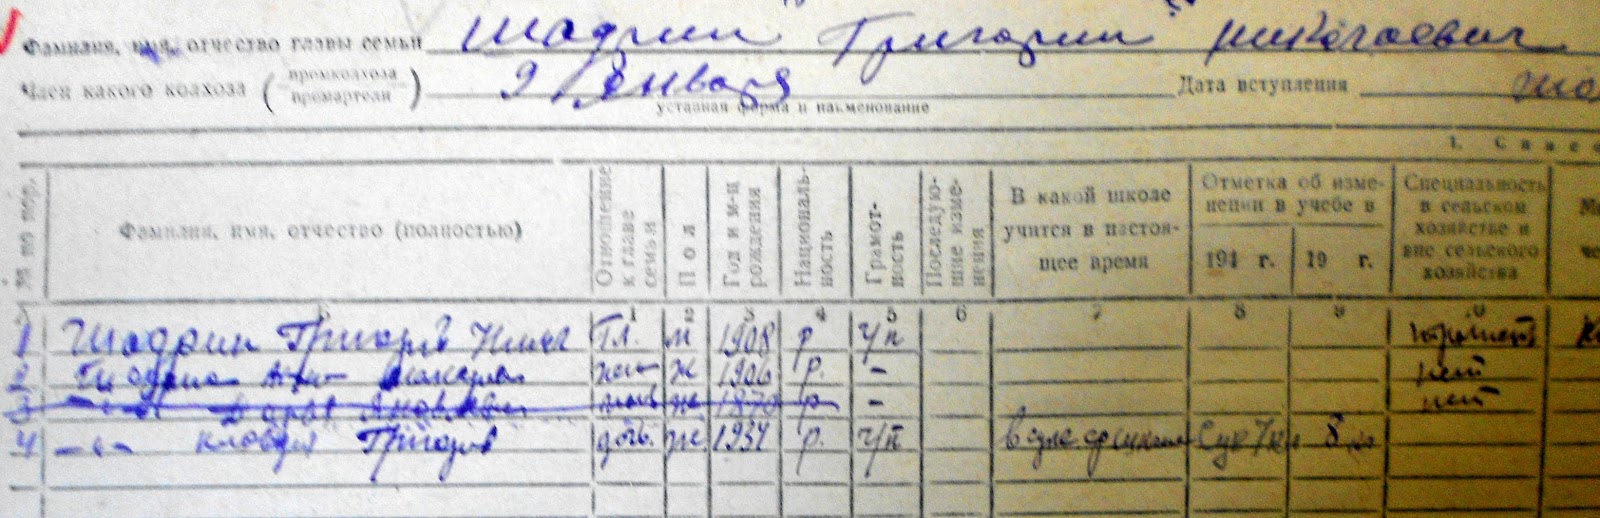 Фамилия, имя, отчество главы семьи Шадрин Григорий Николаевич
Член какого колхоза (промколхоза промартели) 9 Января Дата вступления
уставная форма и наименование
1. Списо
№ по пор.
Фамилия, имя, отчество (полностью)
Отношение к главе семьи
Пол
Год и м-ц рождения
Националь-ность
Грамот-ность
Последую-щие изме-нения
В какой школе учится в настоя-щее время
Отметка об изме-нении в учебе в
194 г. 19 г.
Специальность в сельском хозяйстве и вне сельского хозяйства
1 2 3 4 5 6 7 8 9 10
1 Шадрин Григорий Гл. м 1908 р ч/п
2 Шадрина ж 1906 р. - нет
3 -"- Дарья ж 1870 р - нет
4 -"- Клавдия Григор дочь. ж. 1934 р. ч/п 8 кл